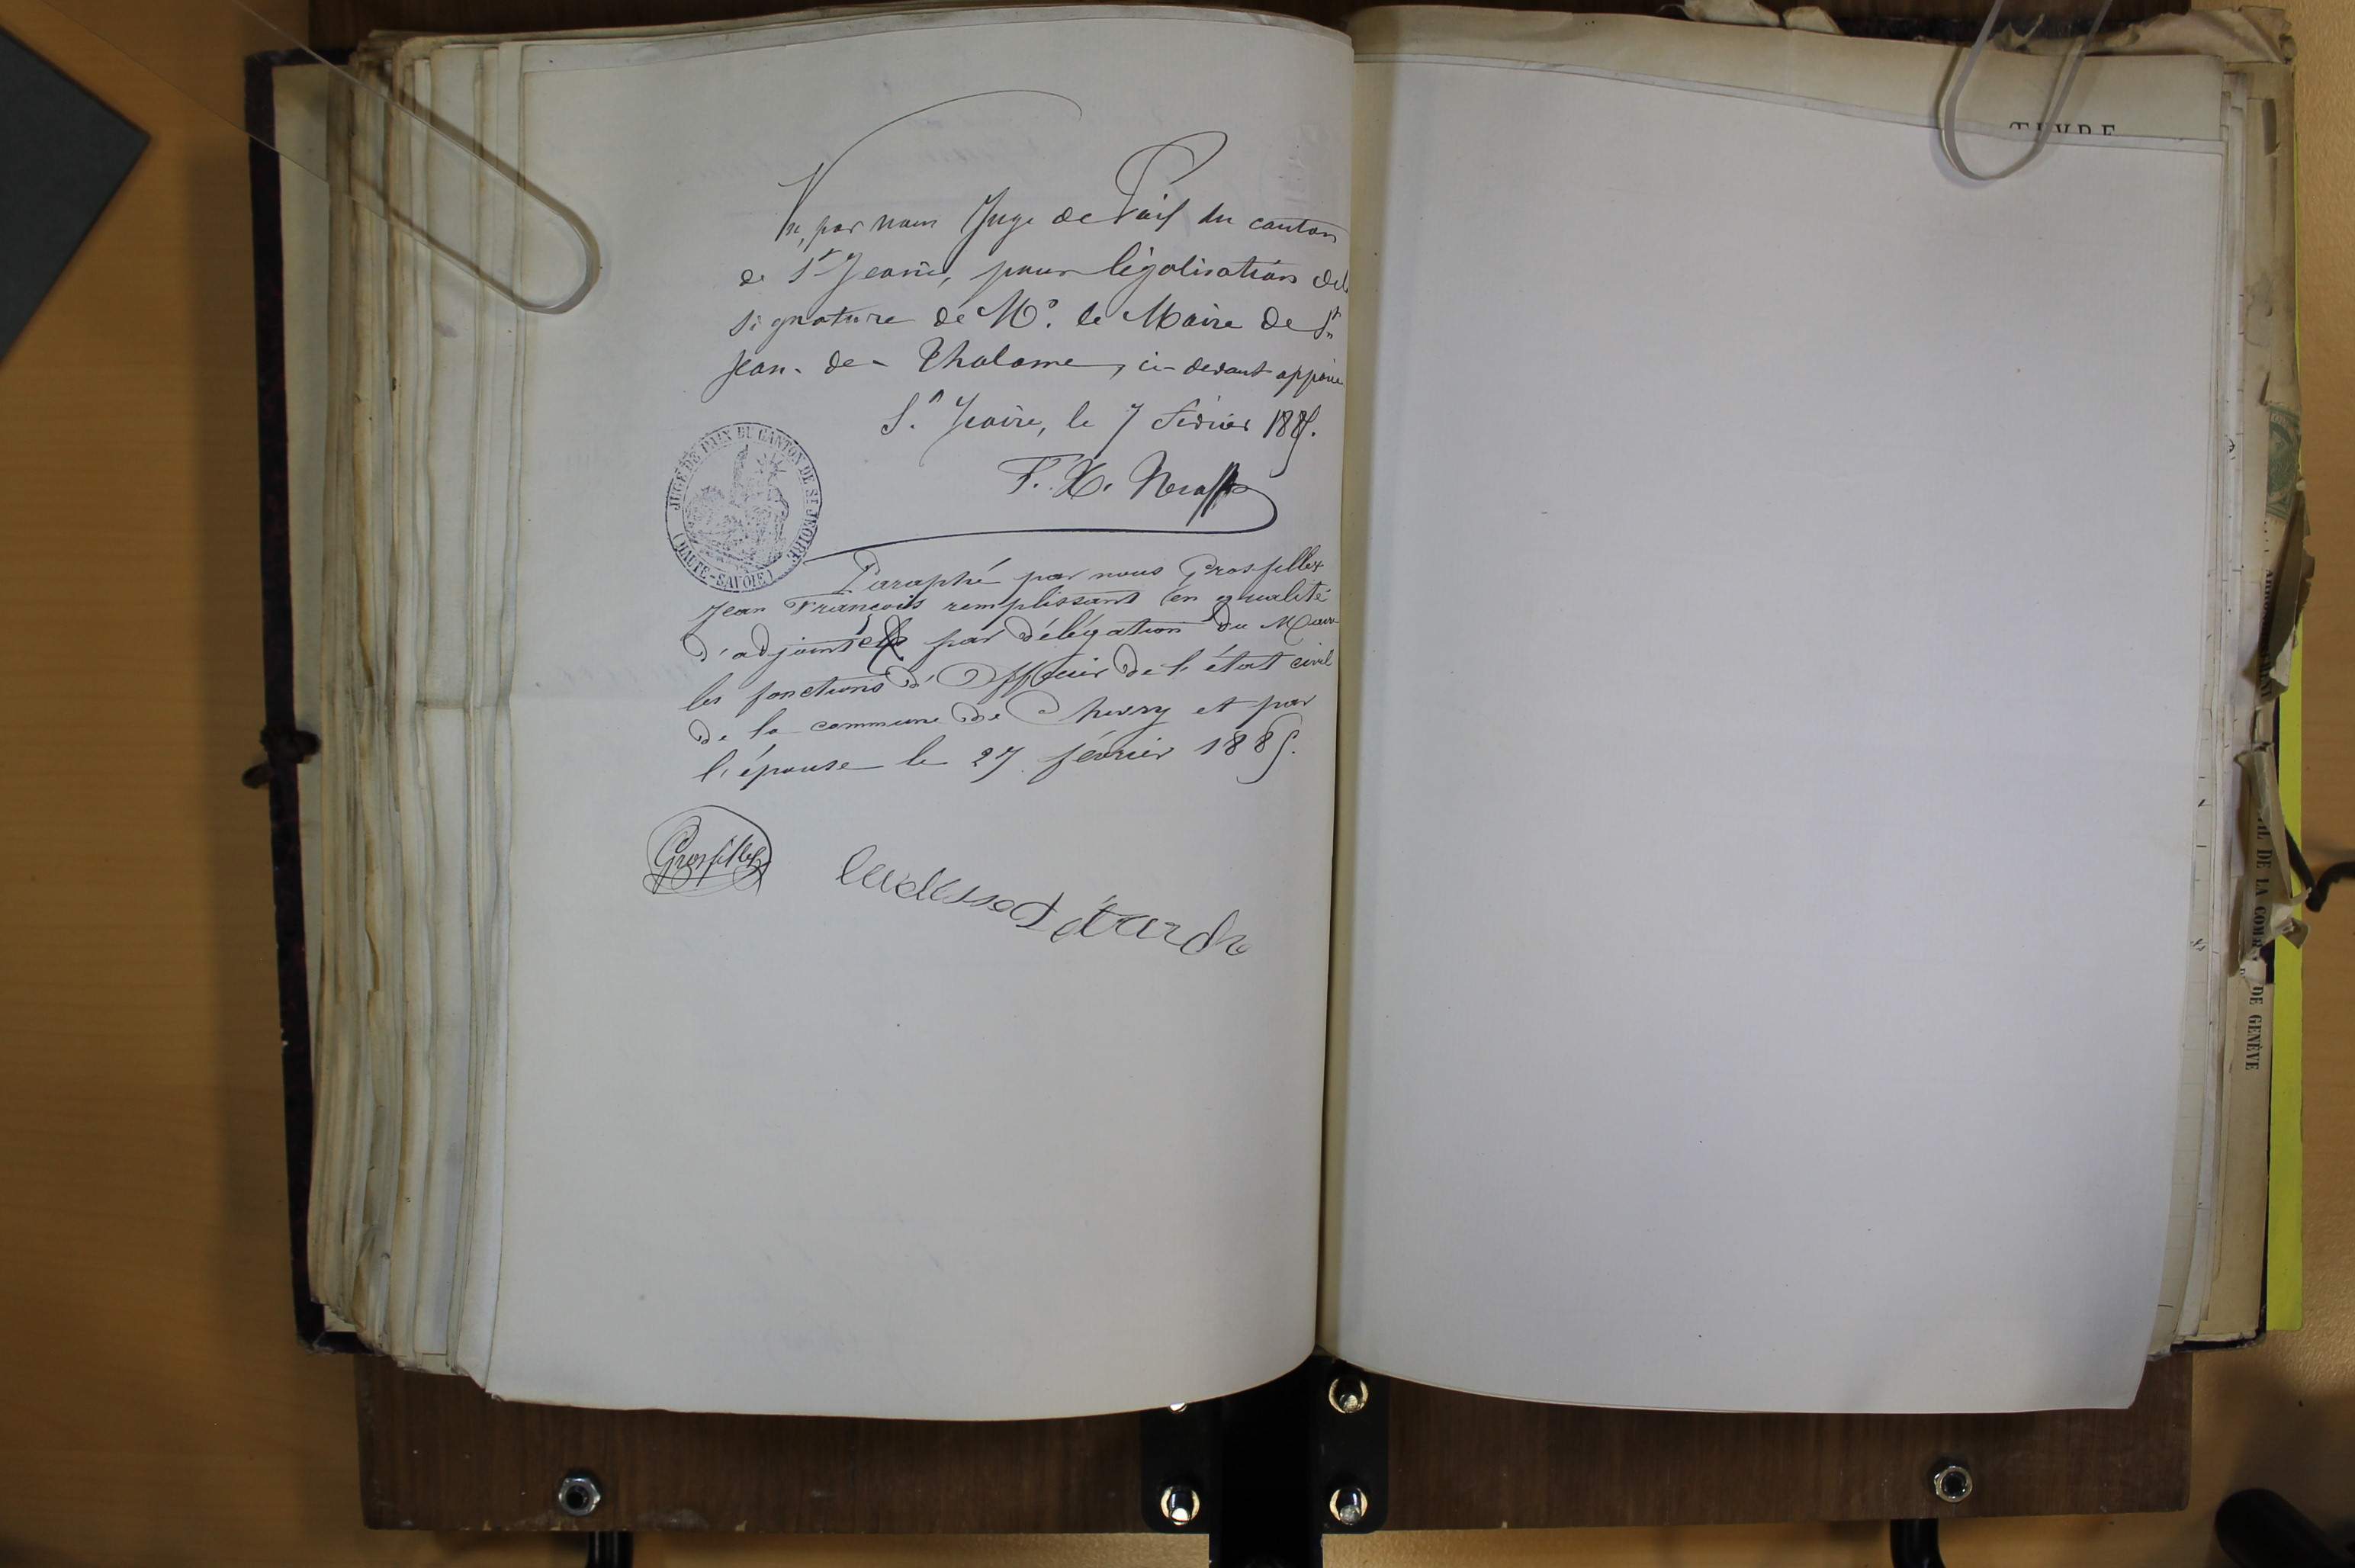 Vu, par nous Juge de Paix du canton
de St Jeoire, pour légalisation de la
signature de Mr. le Maire de St
Jean-de-Tholome, ci-devant apposée
St. Jeoire, le 7 février 1885.
F. X.
JUGE DE PAIX DU CANTON DE ST JEOIRE
(HAUTE-SAVOIE)
Paraphé par nous Grosfillex
Jean François remplissant en qualité
d'adjoint par délégation du Maire
les fonctions d'Officier de l'état civil
de la commune de et par
l'épouse le 27 février 1885.
Grosfillex
DE LA COMM DE GENÈVE